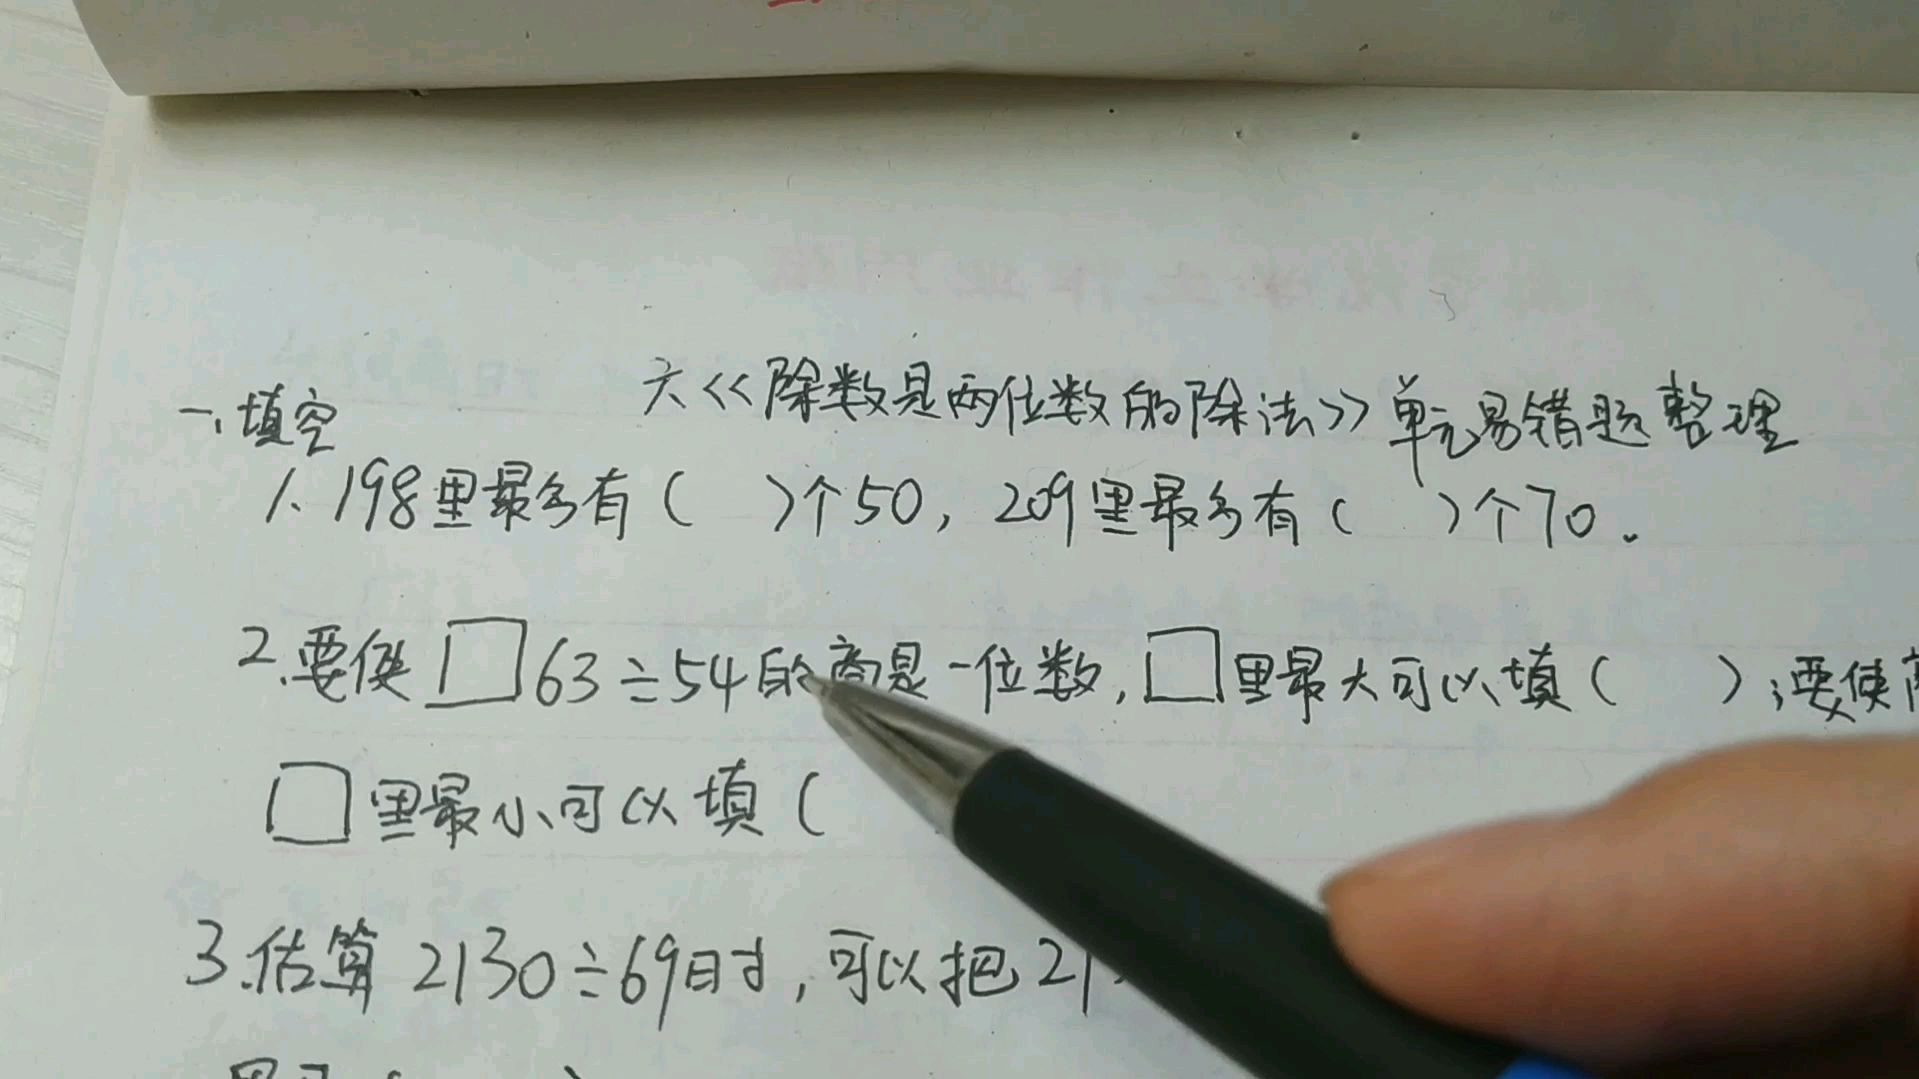 六《除数是两位数的除法》单元易错题整理
一、填空
1.198里最多有( )个50,209里最多有( )个70。
2.要使□63÷54的商是一位数,□里最大可以填( );要使
□里最小可以填(
3.估算2130÷69时,可以把21